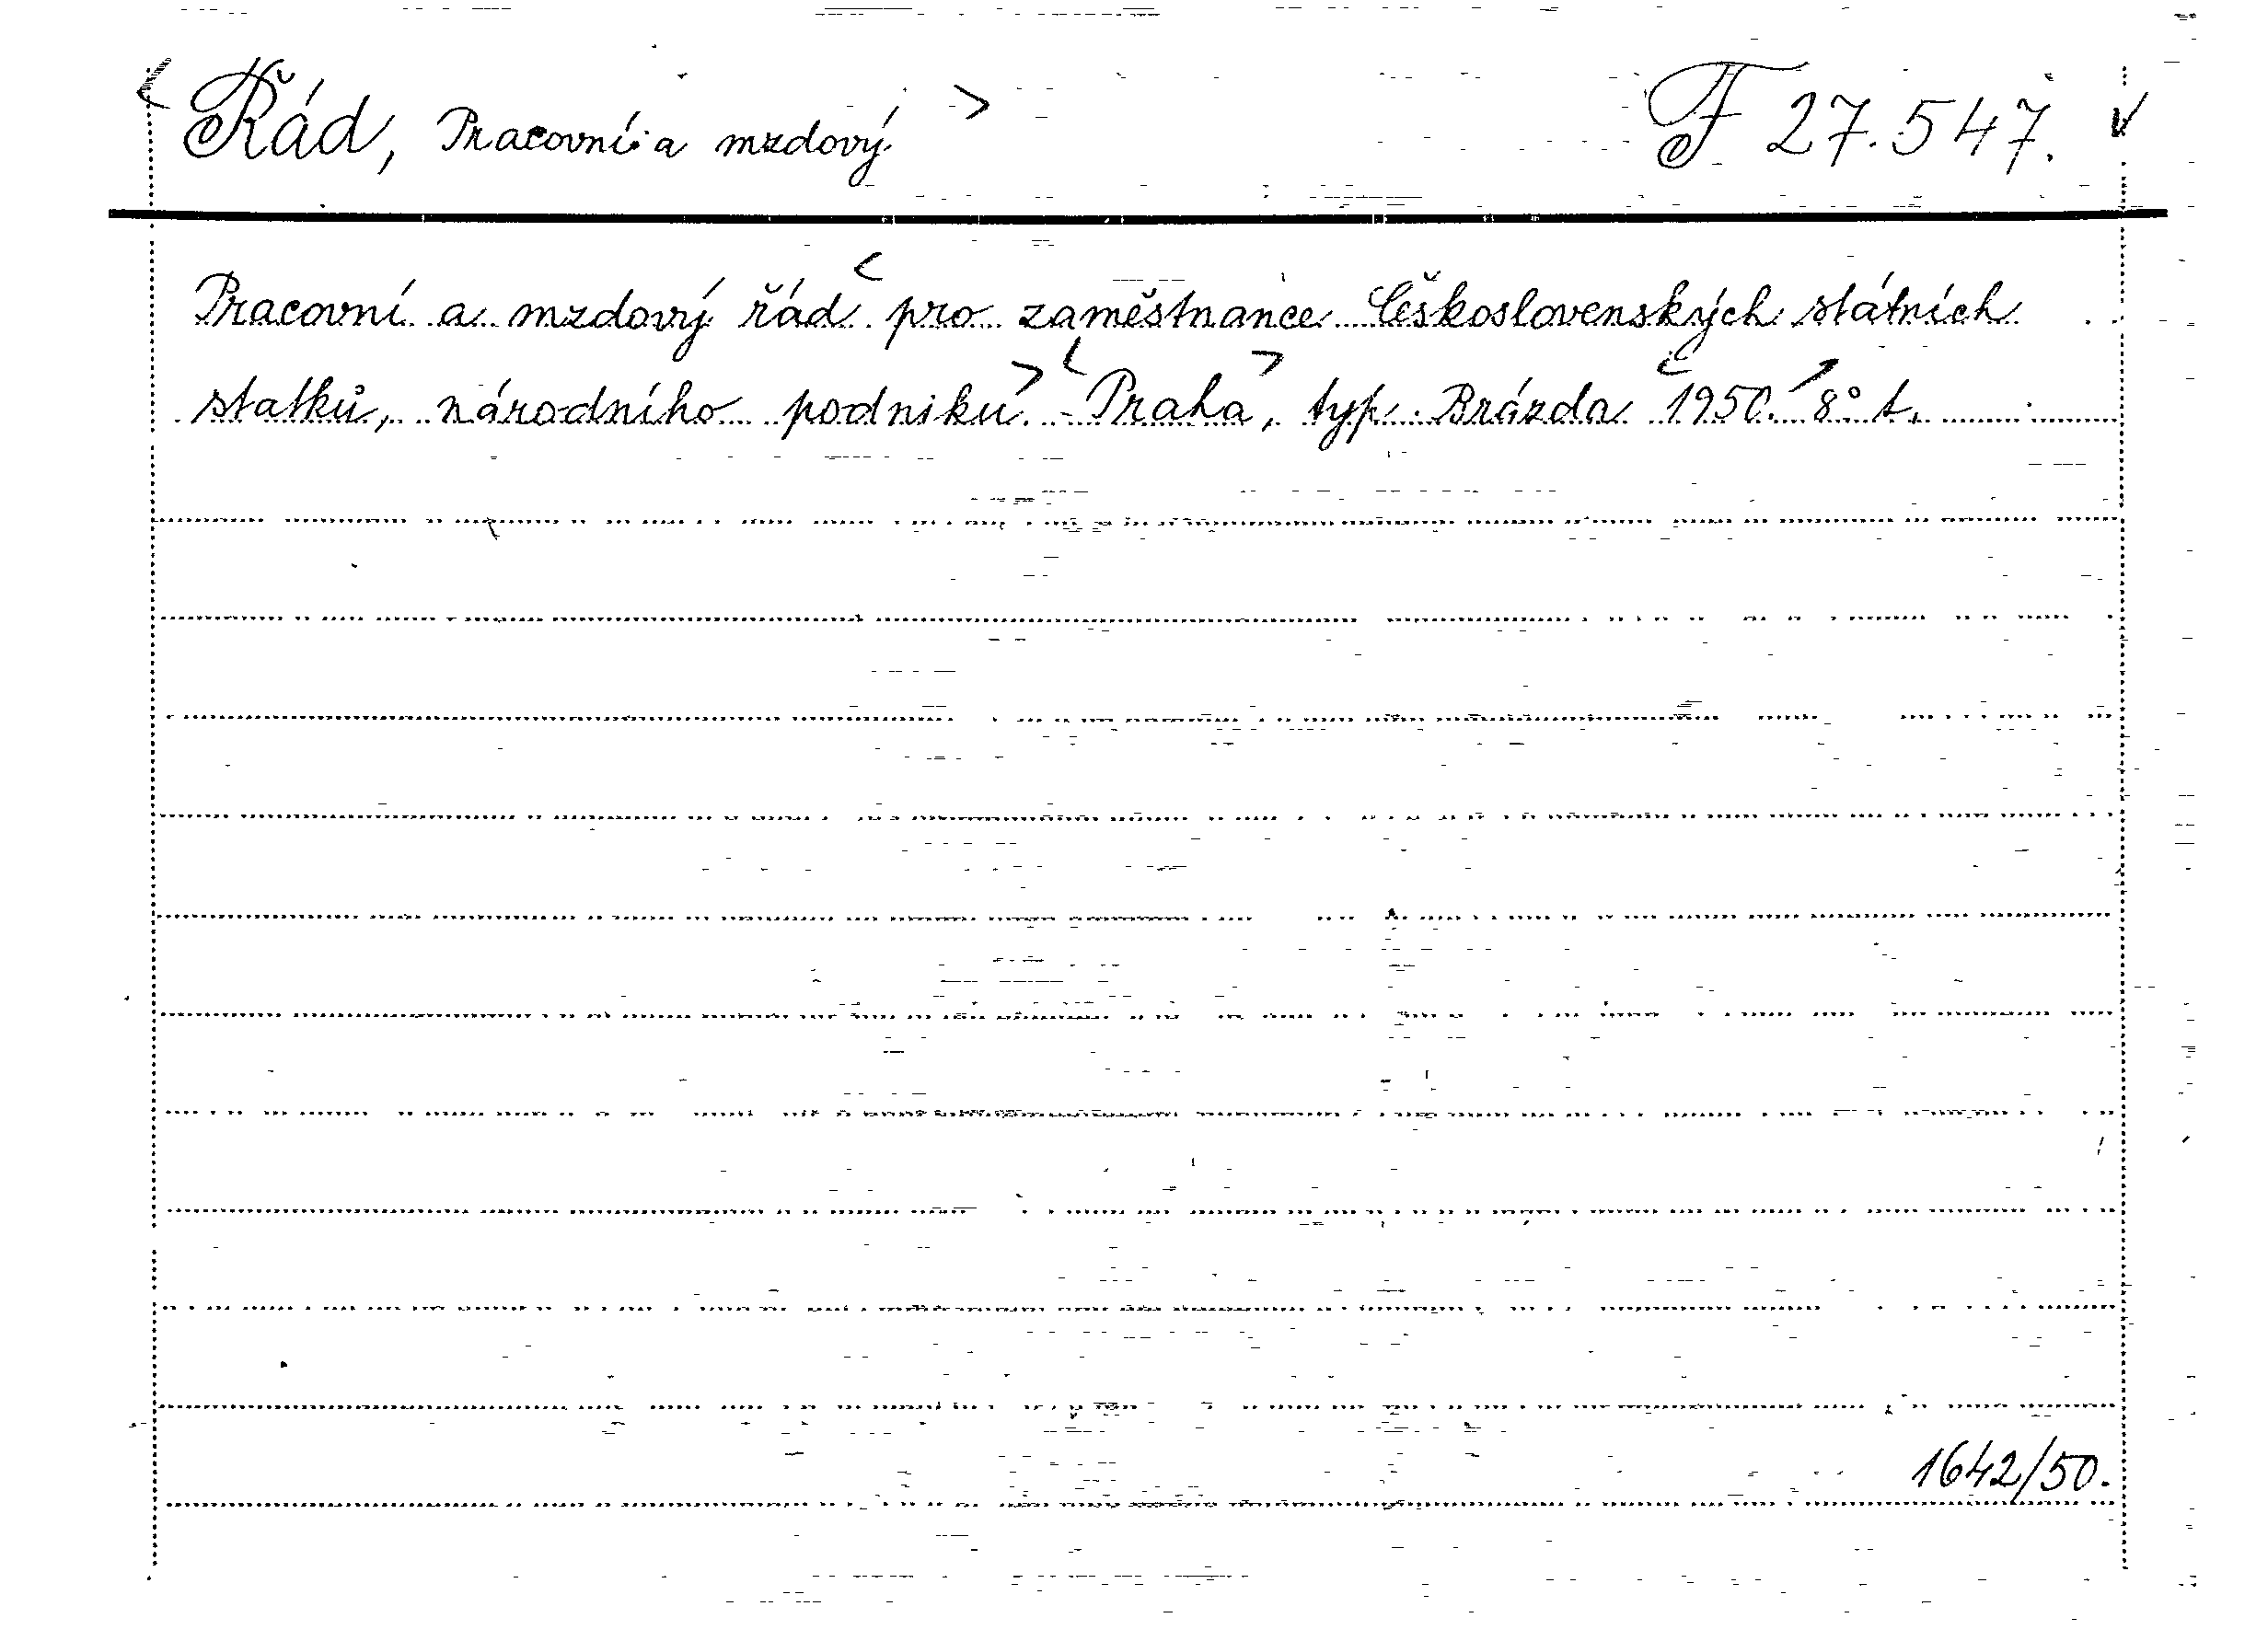 < Řád, Pracovní a mzdový > F 27.547. v
Pracovní a mzdový řád < pro zaměstnance Československých státních
statků, národního podniku. > - < Praha >, typ. Brázda < 1950. > 8° t.
1642/50.